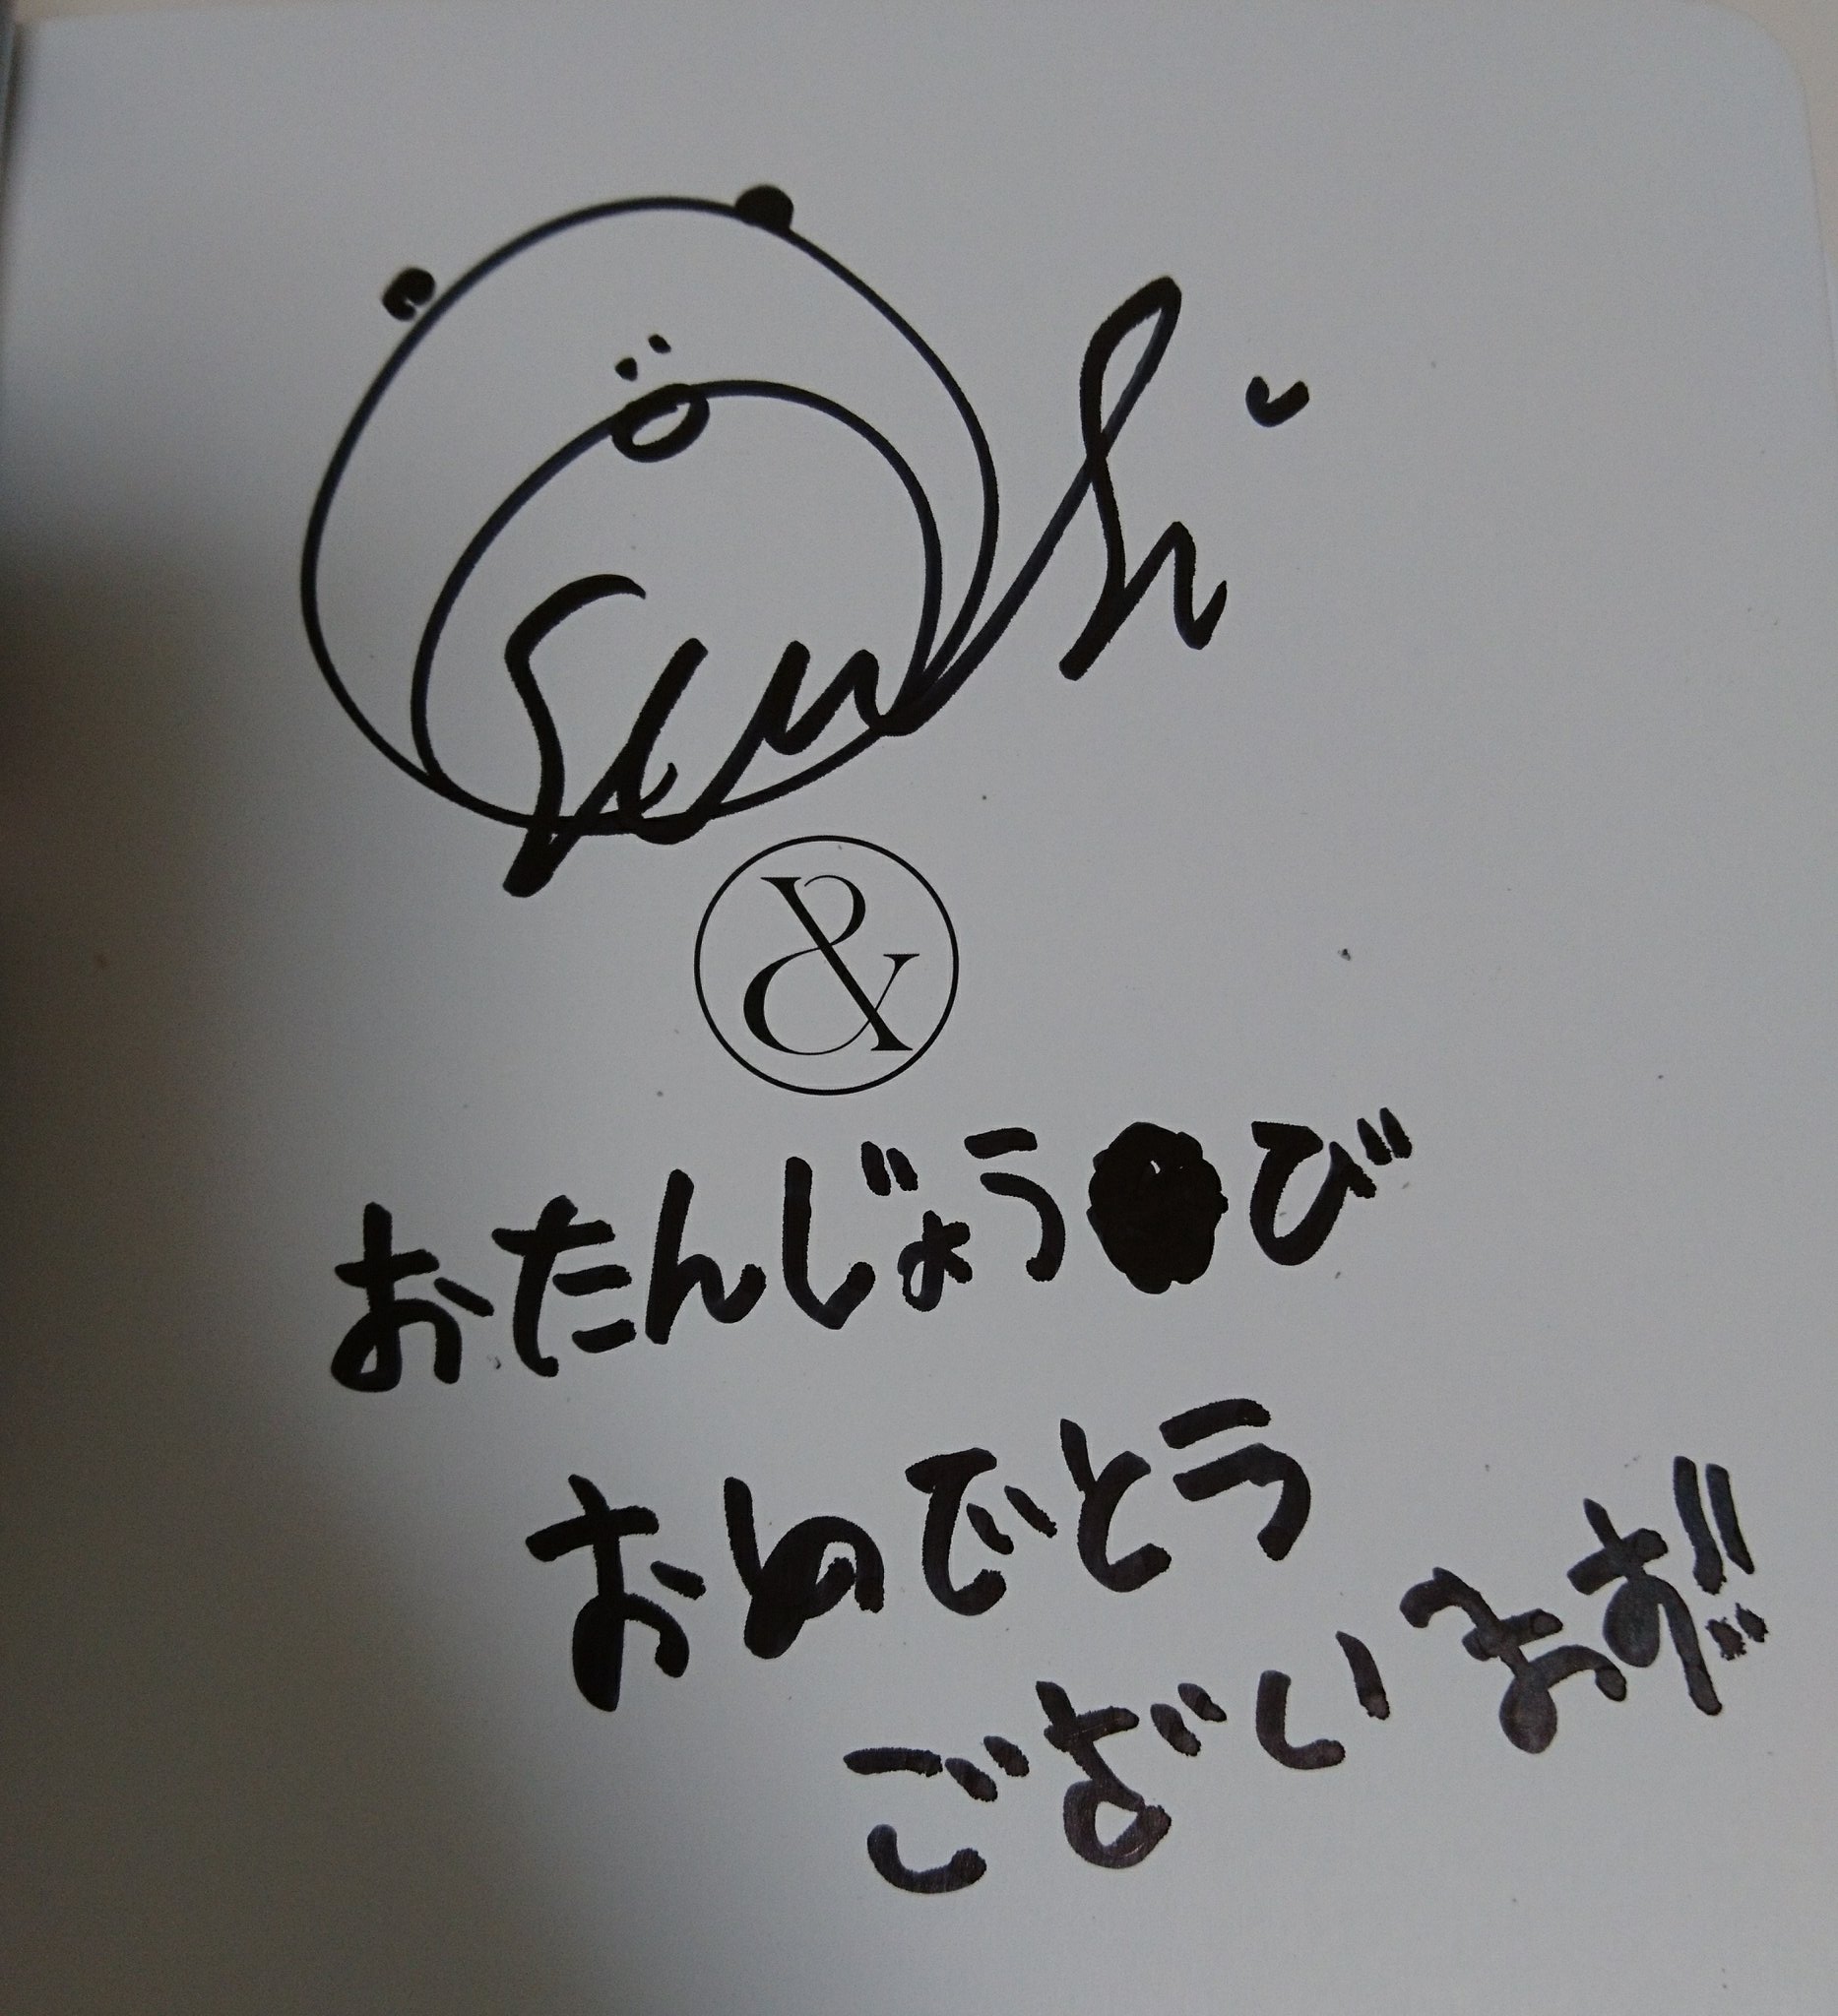 &
おたんじょうび
おめでとう
ございます!!